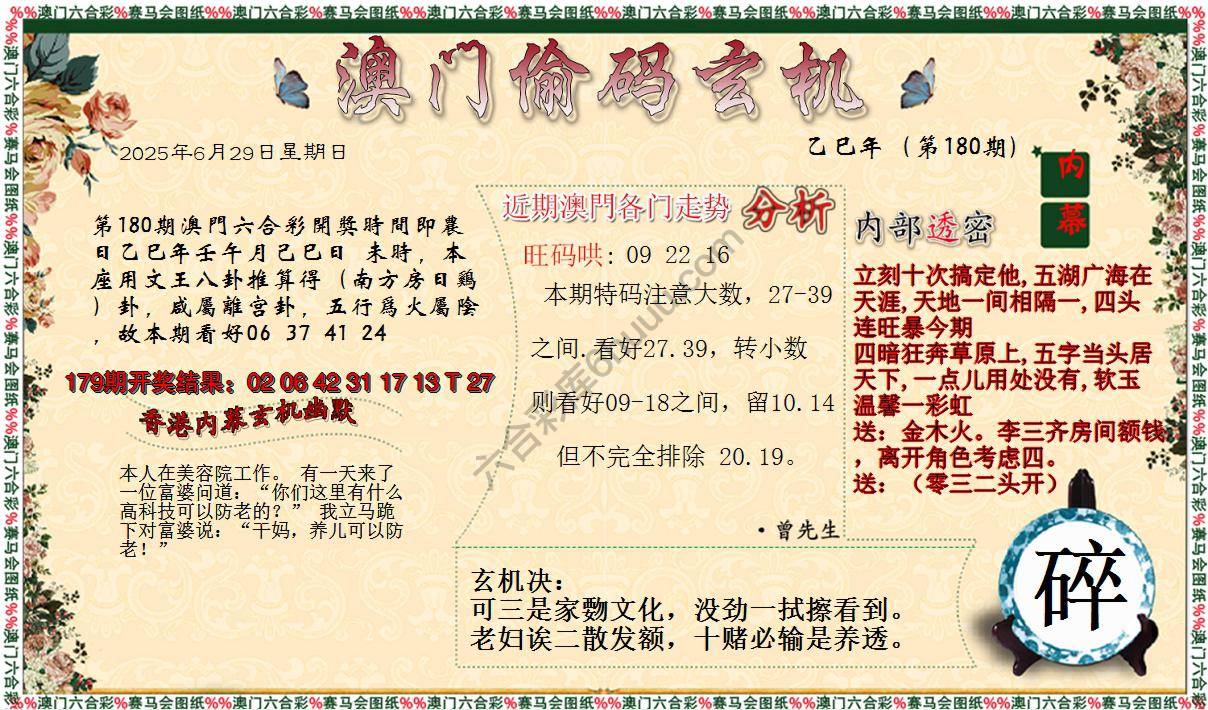 %%澳门六合彩%赛马会图纸%%澳门六合彩%赛马会图纸%%澳门六合彩%赛马会图纸%%澳门六合彩%赛马会图纸%%澳门六合彩%赛马会图纸%%澳门六合彩%赛马会图纸%%
澳门偷码玄机
2025年6月29日星期日
乙巳年（第180期）
内幕
第180期澳門六合彩開獎時間即農
日乙巳年壬午月己巳日 未時，本
座用文王八卦推算得（南方房日鷄
）卦，咸屬離宫卦，五行爲火屬陰
，故本期看好06 37 41 24
179期开奖结果：02 06 42 31 17 13 T 27
香港内幕玄机幽默
本人在美容院工作。 有一天来了
一位富婆问道：“你们这里有什么
高科技可以防老的？” 我立马跪
下对富婆说：“干妈，养儿可以防
老！”
近期澳門各门走势 分析
旺码哄: 09 22 16
本期特码注意大数，27-39
之间.看好27.39，转小数
则看好09-18之间，留10.14
但不完全排除 20.19。
·曾先生
内部透密
立刻十次搞定他,五湖广海在
天涯,天地一间相隔一,四头
连旺暴今期
四暗狂奔草原上,五字当头居
天下,一点儿用处没有,软玉
温馨一彩虹
送：金木火。李三齐房间额钱
，离开角色考虑四。
送：（零三二头开）
玄机决：
可三是家覅文化，没劲一拭擦看到。
老妇诶二散发额，十赌必输是养透。
碎
六合彩库6huuu.com
%%澳门六合彩%赛马会图纸%%澳门六合彩%赛马会图纸%%澳门六合彩%赛马会图纸%%澳门六合彩%赛马会图纸%%澳门六合彩%赛马会图纸%%澳门六合彩%赛马会图纸%%